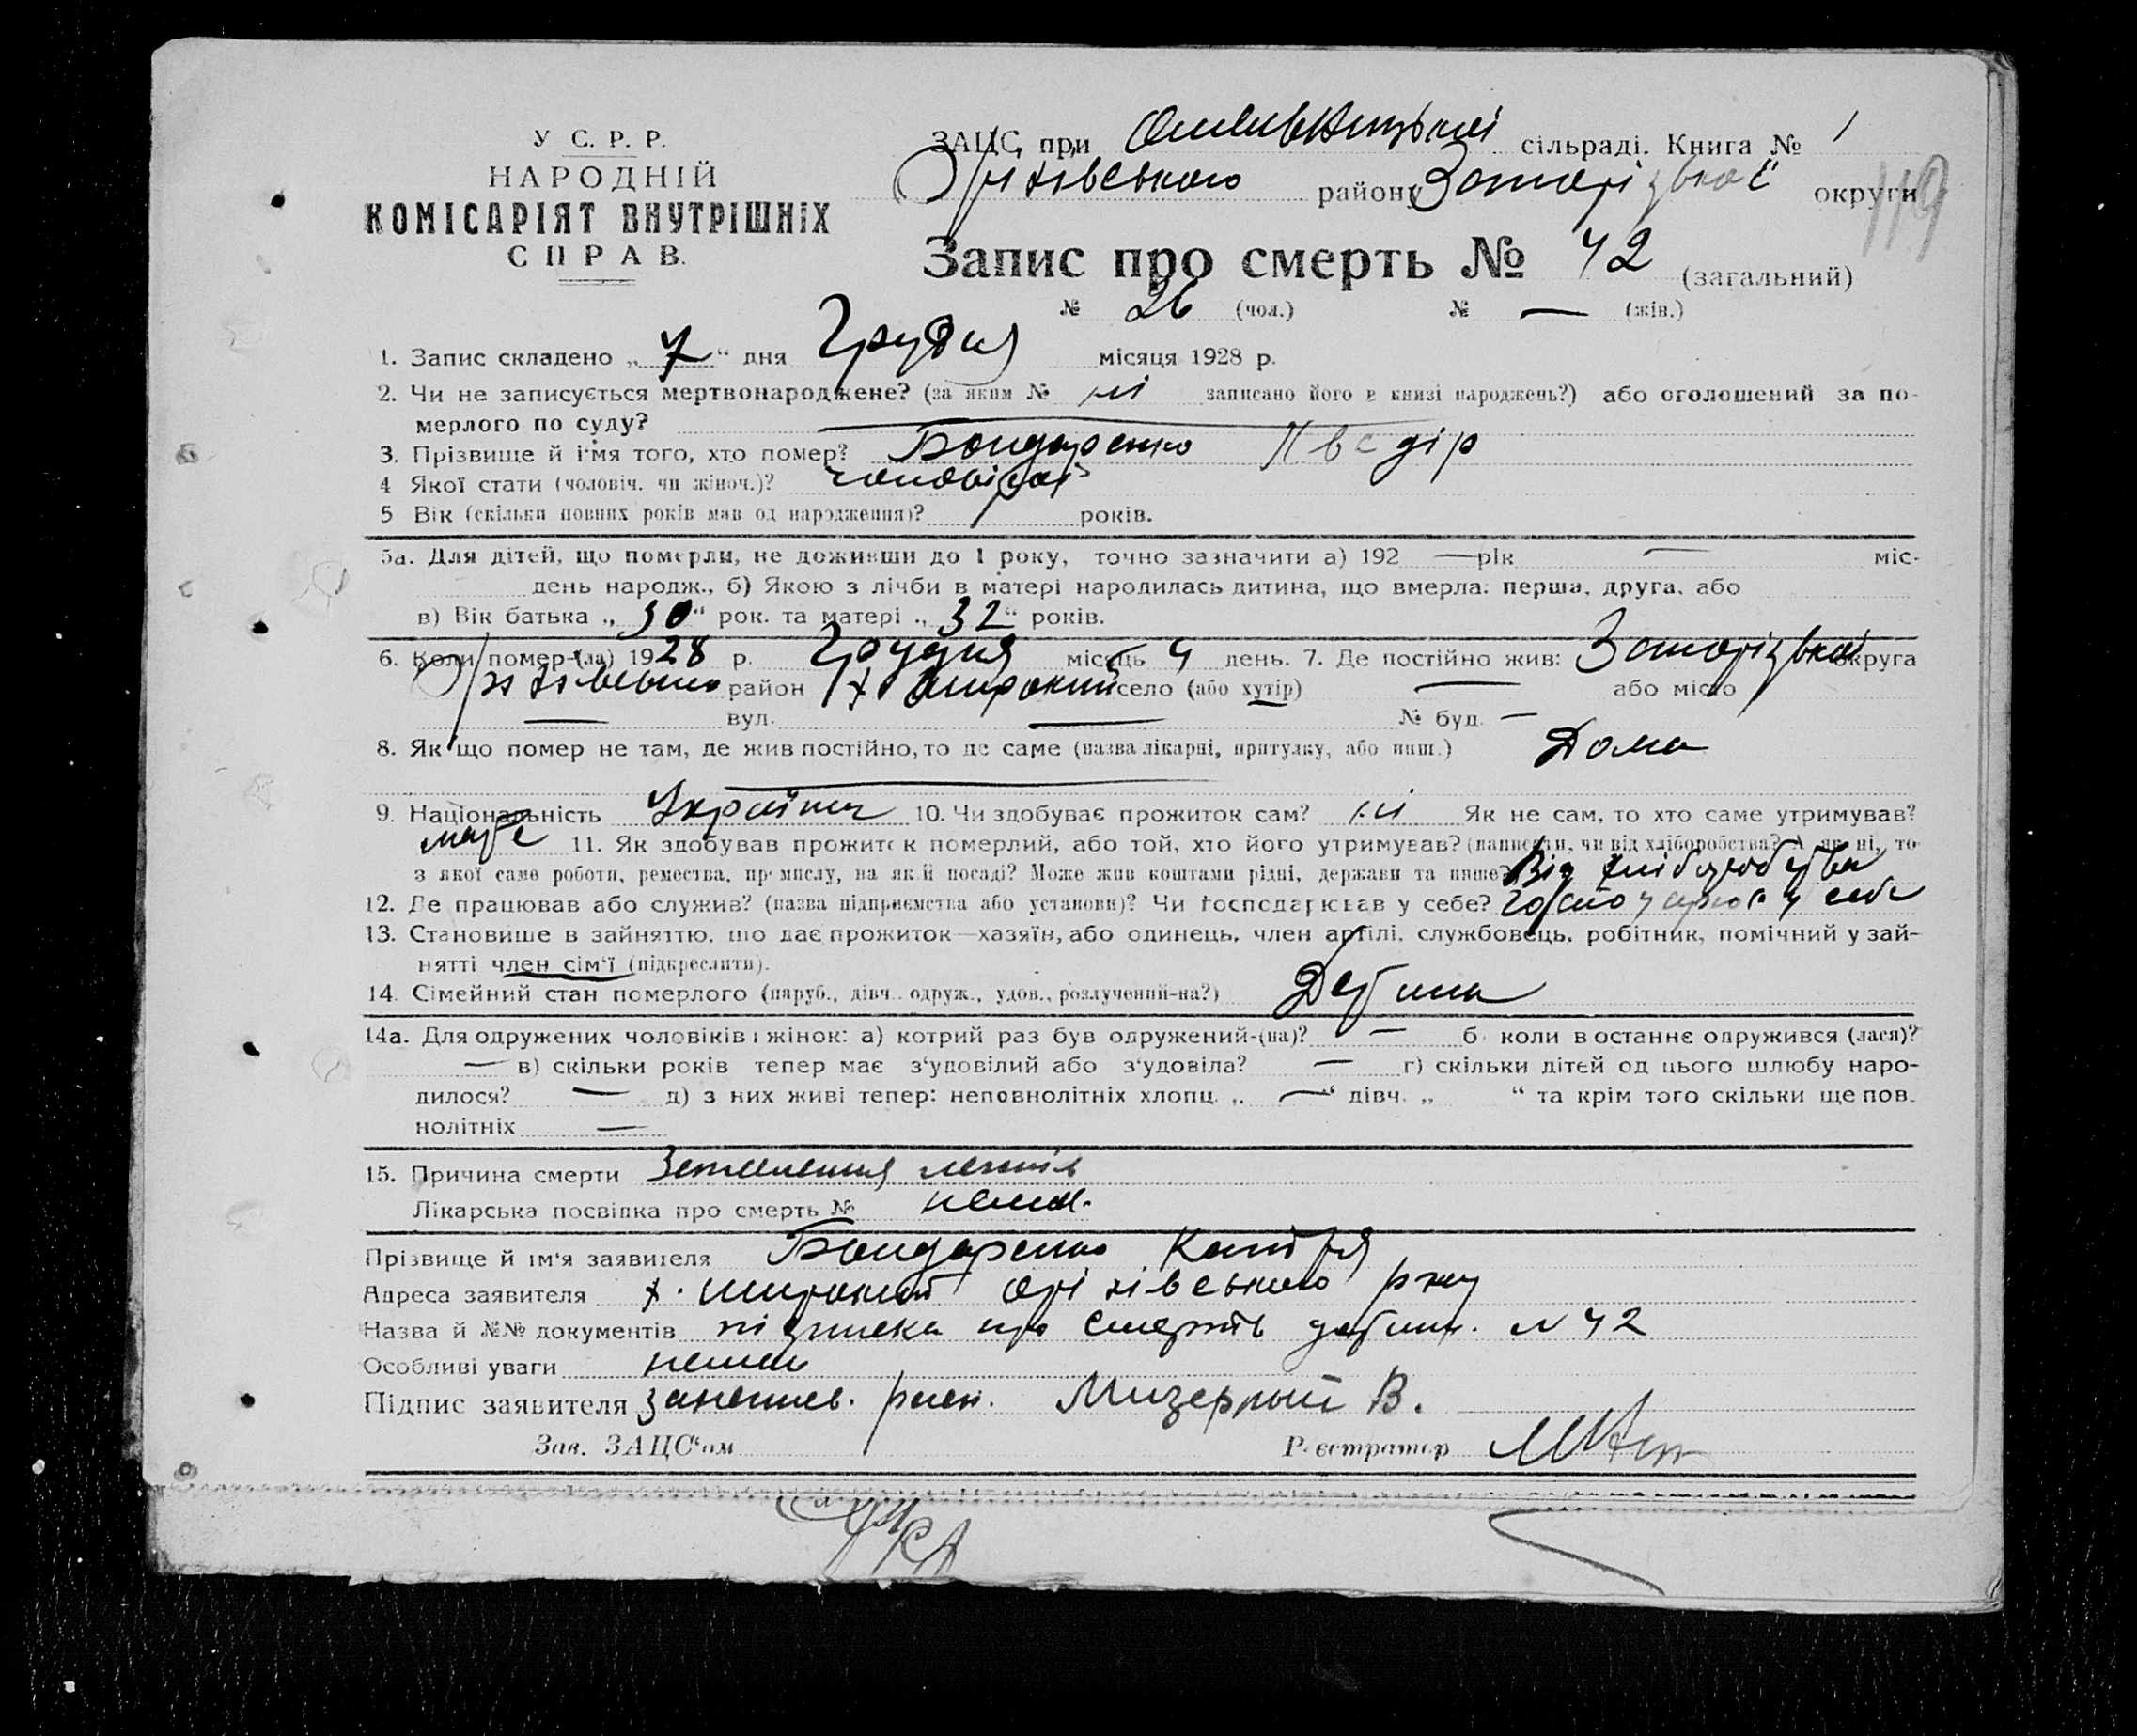 У С. Р. Р.
НАРОДНІЙ
КОМІСАРІЯТ ВНУТРІШНІХ
СПРАВ.
ЗАЦС при сільраді. Книга № 1
Оріхівського району Запорізької округи
119
Запис про смерть № 42 (загальний)
№ 26 (чол.) № — (жін.)
1. Запис складено „ 7 “ дня Грудня місяця 1928 р.
2. Чи не записується мертвонароджене? (за яким № ні записано його в книзі народжень?) або оголошений за по-
мерлого по суду? —
3. Прізвище й ім'я того, хто помер? Бондаренко
4 Якої стати (чоловіч. чи жіноч.)? чоловічої
5 Вік (скільки повних років мав од народження)? років.
5а. Для дітей, що померли, не доживши до 1 року, точно зазначити а) 192 — рік — міс-
день народж., б) Якою з лічби в матері народилась дитина, що вмерла: перша, друга, або
в) Вік батька „ 30 “ рок. та матері „ 32 “ років.
6. Коли помер-(ла) 1928 р. Грудня місяць 4 день. 7. Де постійно жив: Запорізької округа
Оріхівського район х Широкий село (або хутір) — або місто
— вул. — № буд. —
8. Як що помер не там, де жив постійно, то де саме (назва лікарні, притулку, або инш.) Дома
9. Національність Українец 10. Чи здобуває прожиток сам? ні Як не сам, то хто саме утримував?
мате 11. Як здобував прожиток померлий, або той, хто його утримував? (написати, чи від хліборобства? А як ні, то
з якої саме роботи, ремества, промислу, на якій посаді? Може жив коштами рідні, держави та инше? Від хліборобства
12. Де працював або служив? (назва підприємства або установи)? Чи господарював у себе? у себе
13. Становище в зайняттю, що дає прожиток—хазяїн, або одинець, член артілі, службовець, робітник, помічний у зай-
нятті член сім'ї (підкреслити).
14. Сімейний стан померлого (паруб., дівч. одруж., удов., розлучений-на?) Детина
14а. Для одружених чоловіків і жінок: а) котрий раз був одружений-(на)? — б коли в останнє одружився (лася)?
— в) скільки років тепер має з'удовілий або з'удовіла? — г) скільки дітей од цього шлюбу наро-
дилося? — д) з них живі тепер: неповнолітніх хлопц. „ — “ дівч. „ “ та крім того скільки ще пов.
нолітніх —
15. Причина смерти
Лікарська посвідка про смерть № нема.
Прізвище й ім'я заявителя Бондаренко Катря
Адреса заявителя х. Широкий Оріхівського р-ну
Назва й №№ документів підписка про смерть детини. № 42
Особливі уваги нема
Підпис заявителя Мизерный В.
Зав. ЗАЦС'ом Реєстратор